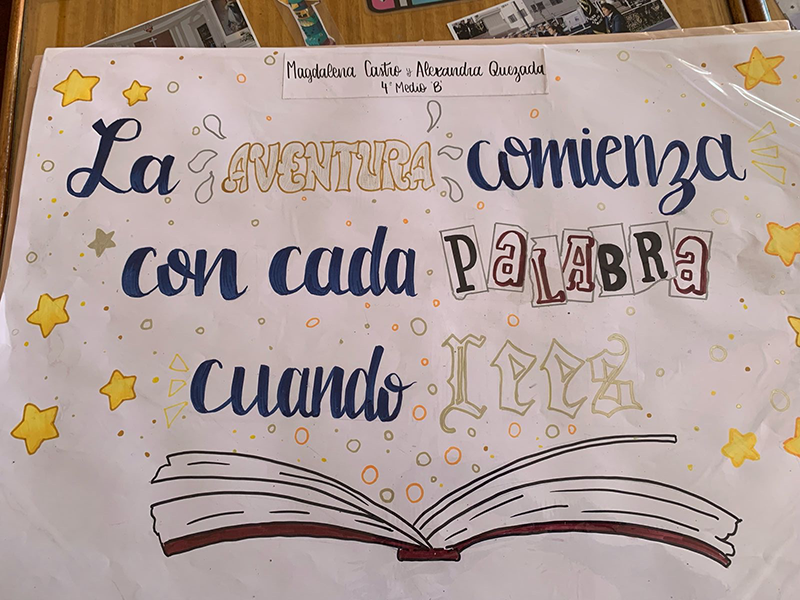 Magdalena Castro y Alexandra Quezada
4° Medio "B"
La AVENTURA comienza
con cada PALABRa
cuando lees